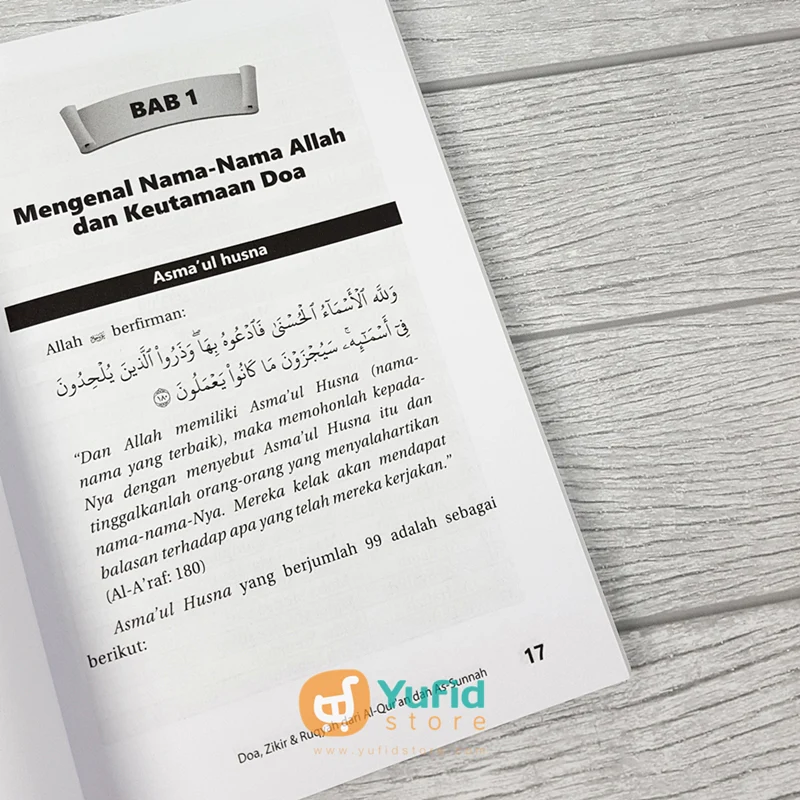 BAB 1
Mengenal Nama-Nama Allah
dan Keutamaan Doa
Asma'ul husna
Allah berfirman:
وَلِلَّهِ ٱلْأَسْمَآءُ ٱلْحُسْنَىٰ فَٱدْعُوهُ بِهَا ۖ وَذَرُوا۟ ٱلَّذِينَ يُلْحِدُونَ
فِىٓ أَسْمَـٰٓئِهِۦ ۚ سَيُجْزَوْنَ مَا كَانُوا۟ يَعْمَلُونَ ١٨٠
“Dan Allah memiliki Asma'ul Husna (nama-
nama yang terbaik), maka memohonlah kepada-
Nya dengan menyebut Asma'ul Husna itu dan
tinggalkanlah orang-orang yang menyalahartikan
nama-nama-Nya. Mereka kelak akan mendapat
balasan terhadap apa yang telah mereka kerjakan.”
(Al-A'raf: 180)
Asma'ul Husna yang berjumlah 99 adalah sebagai
berikut:
17
Doa, Zikir & Ruqyah dari Al-Qur'an dan As-Sunnah
Yufid
store
www.yufidstore.com